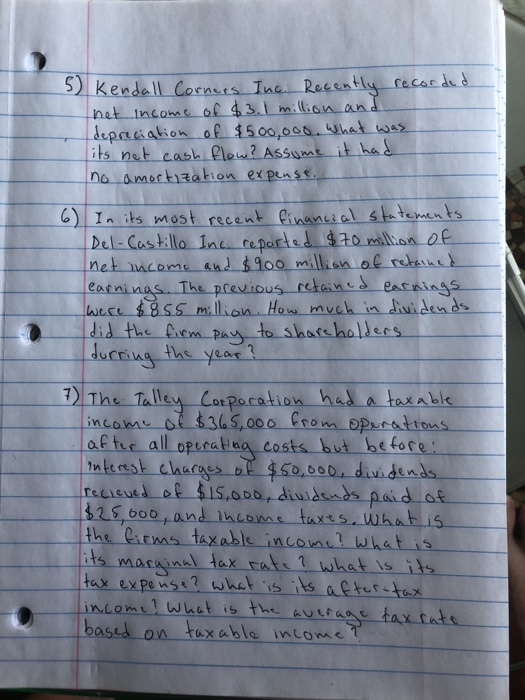 5) Kendall Corners Inc. Recently recorded
net income of $3.1 million and
depreciation of $500,000. What was
its net cash flow? Assume it had
no amortization expense.
6) In its most recent financial statements
Del-Castillo Inc. reported $70 million of
net income and $900 million of retained
earnings. The previous retained earnings
were $855 million. How much in dividends
did the firm pay to shareholders
durring the year?
7) The Talley Corporation had a taxable
income of $365,000 from operations
after all operating costs but before:
interest charges of $50,000, dividends
recieved of $15,000, dividends paid of
$25,000, and income taxes. What is
the firms taxable income? What is
its marginal tax rate? What is its
tax expense? what is its after-tax
income? What is the average tax rate
based on taxable income?